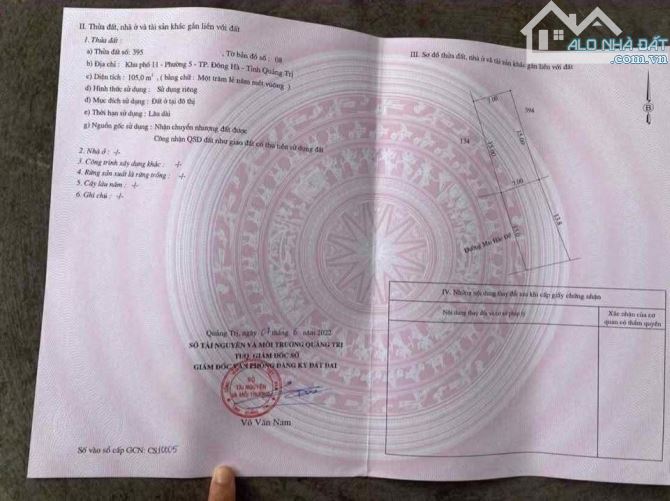 II. Thửa đất, nhà ở và tài sản khác gắn liền với đất
1. Thửa đất:
a) Thửa đất số: 395 , Tờ bản đồ số : 08
b) Địa chỉ : Khu phố 11 - Phường 5 - TP. Đông Hà - Tỉnh Quảng Trị
c) Diện tích : 105,0 m², ( bằng chữ : Một trăm lẻ năm mét vuông )
d) Hình thức sử dụng : Sử dụng riêng
đ) Mục đích sử dụng : Đất ở tại đô thị
e) Thời hạn sử dụng : Lâu dài
g) Nguồn gốc sử dụng : Nhận chuyển nhượng đất được
Công nhận QSD đất như giao đất có thu tiền sử dụng đất
2. Nhà ở : -/-
3. Công trình xây dựng khác : -/-
4. Rừng sản xuất là rừng trồng : -/-
5. Cây lâu năm : -/-
6. Ghi chú : -/-
Quảng Trị, ngày 01 tháng 6 năm 2022
SỞ TÀI NGUYÊN VÀ MÔI TRƯỜNG QUẢNG TRỊ
TUQ. GIÁM ĐỐC SỞ
GIÁM ĐỐC VĂN PHÒNG ĐĂNG KÝ ĐẤT ĐAI
SỞ
TÀI NGUYÊN
VÀ MÔI TRƯỜNG
Võ Văn Nam
Số vào sổ cấp GCN: CS10005
ALO NHÀ ĐẤT
.com.vn
III. Sơ đồ thửa đất, nhà ở và tài sản khác gắn liền với đất
B
7.00
394
134
15.00
15.00
7.00
Đường Mai Hắc Đế
15.0
13.8
IV. Những nội dung thay đổi sau khi cấp giấy chứng nhận
Nội dung thay đổi và cơ sở pháp lý
Xác nhận của cơ
quan có thẩm quyền